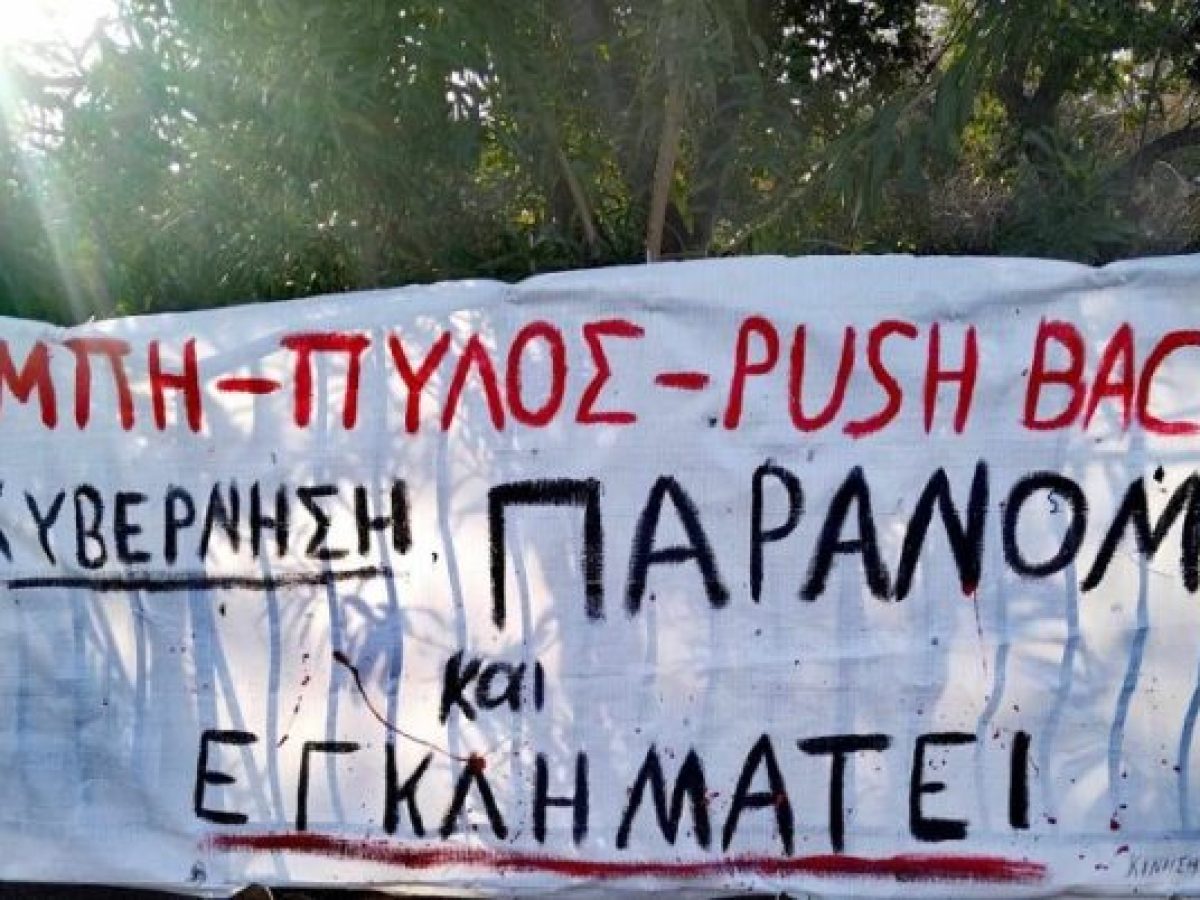 ΜΠΗ-ΠΥΛΟΣ-PUSH BAC
ΚΥΒΕΡΝΗΣΗ ΠΑΡΑΝΟΜ
και
ΕΓΚΛΗΜΑΤΕΙ
ΚΙΝΗΣΗ